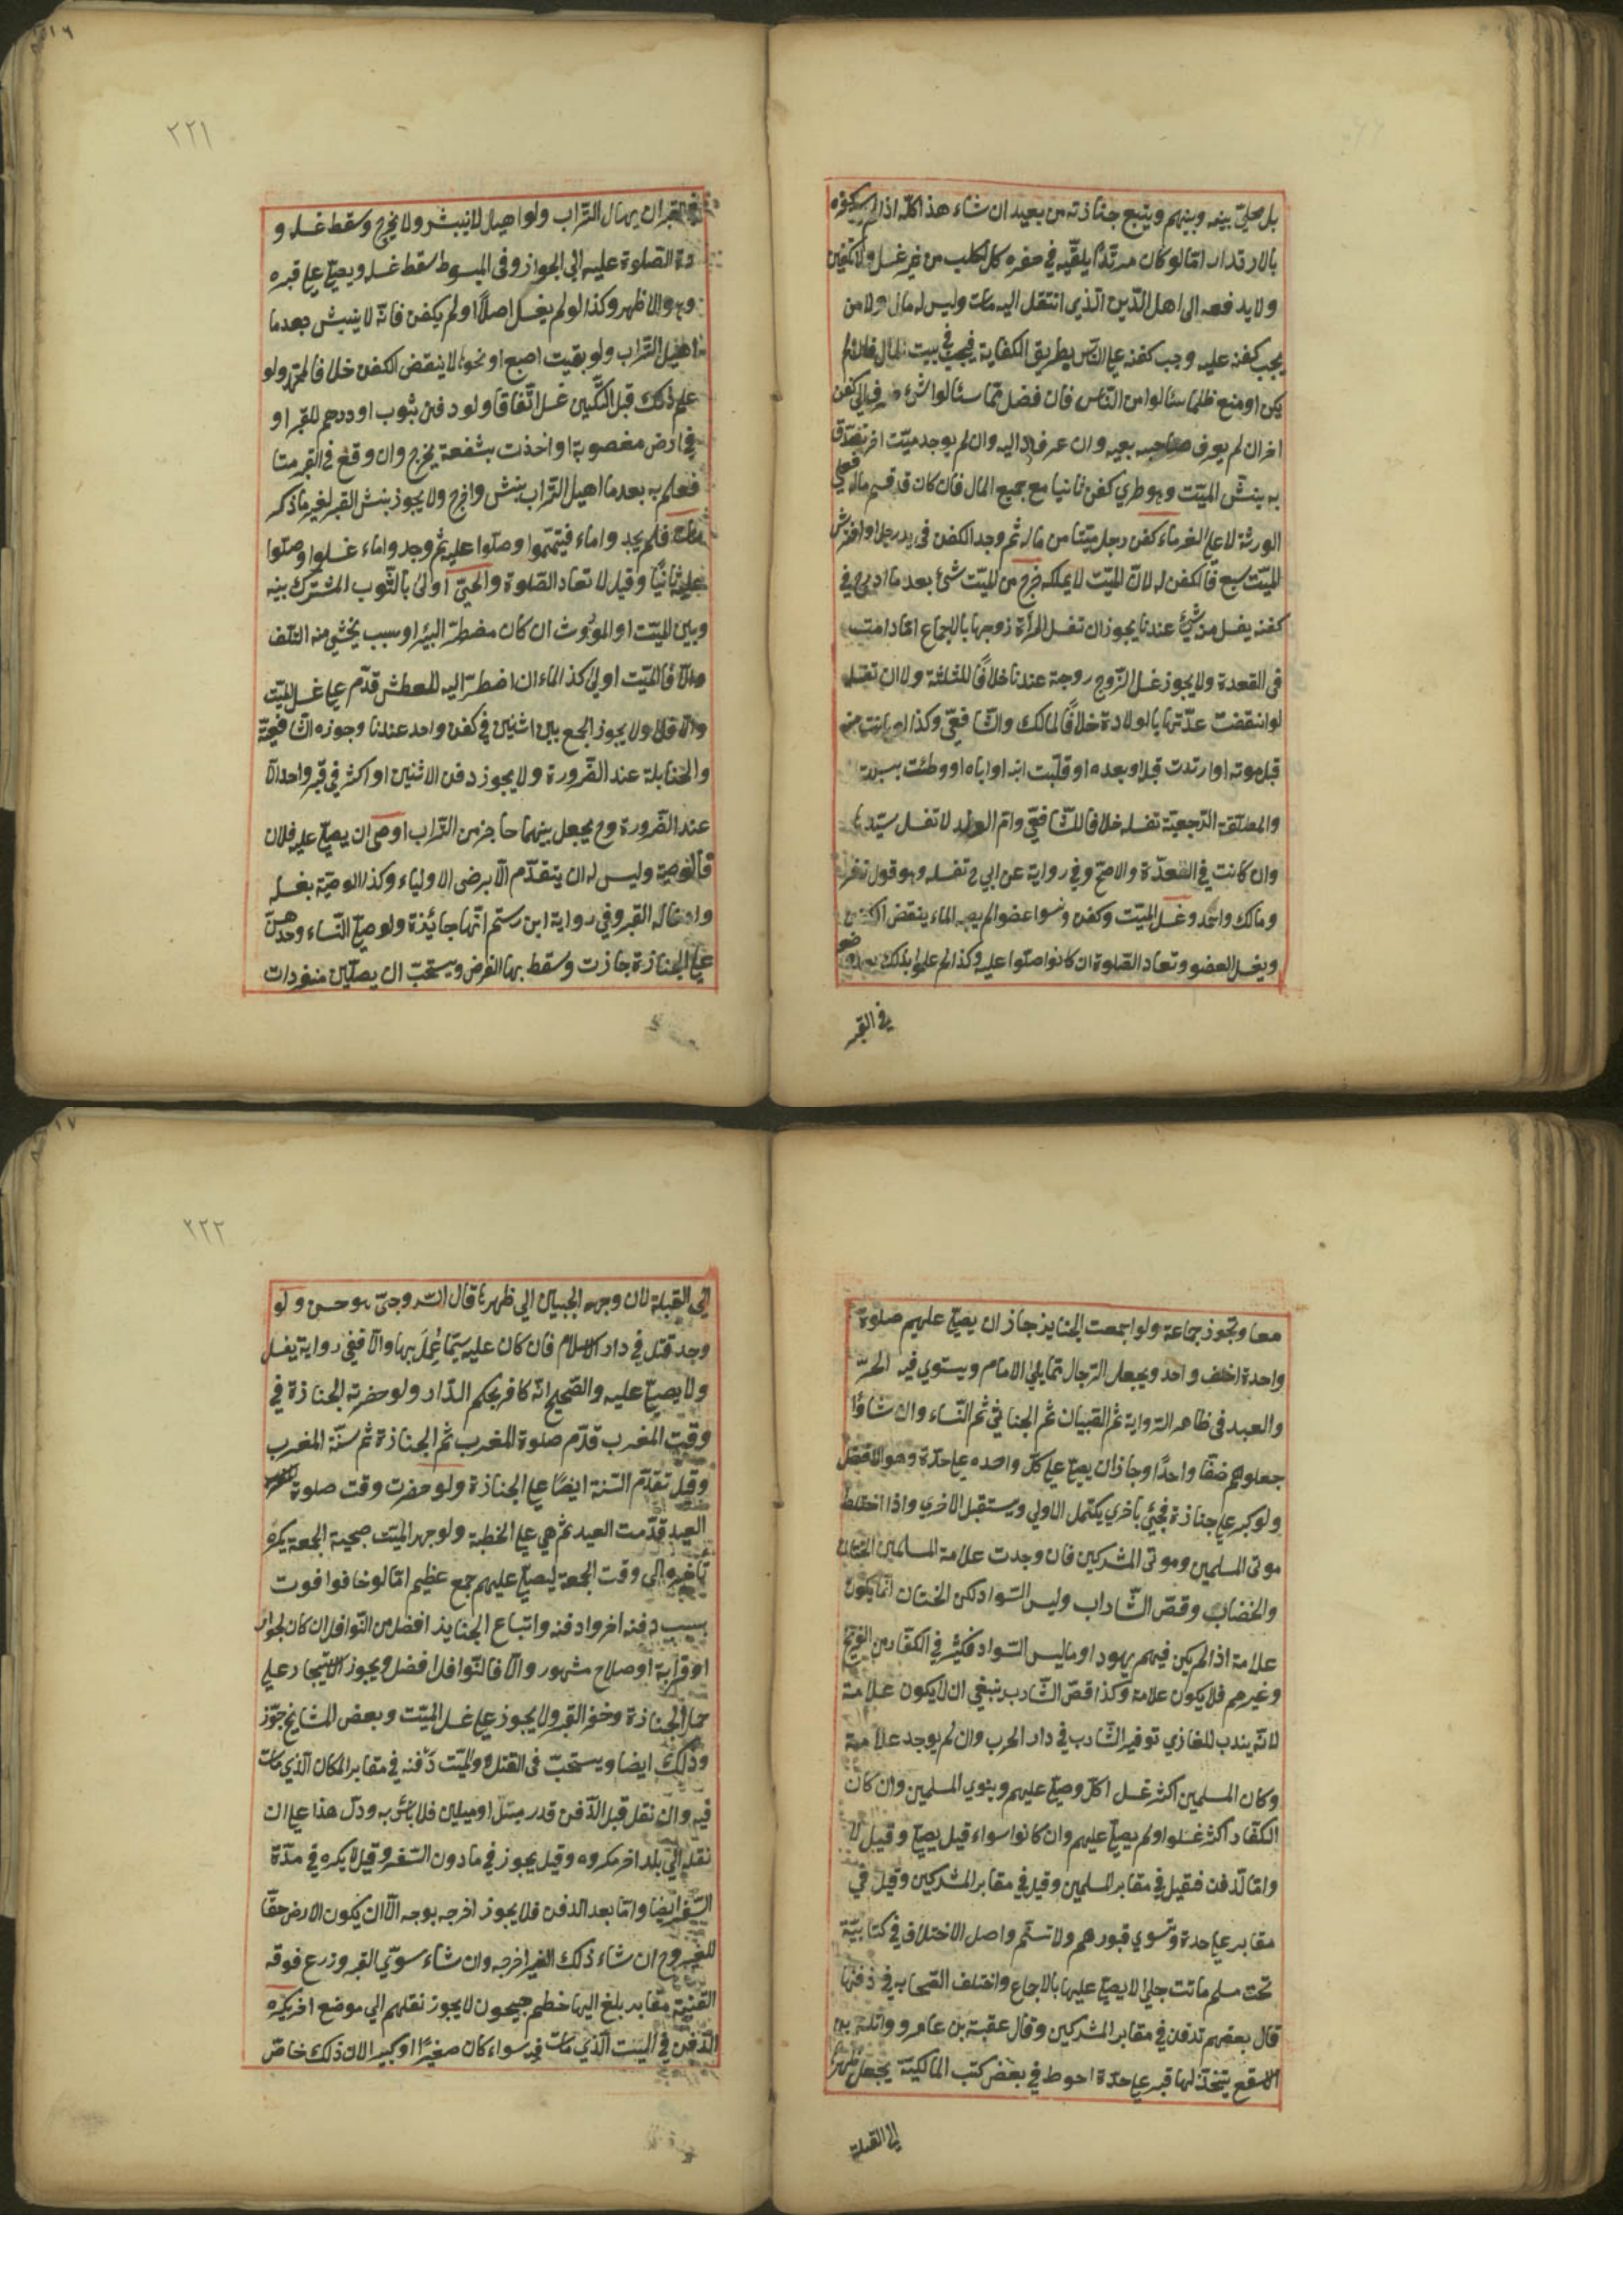 بل يخلي بينه وبينهم ويتبع جنازته من بعيد ان شاء هذا كله اذا لم يكن كفره
بالارتداد اما لو كان مرتدا يلقيه في حفرة كالكلب من غير غسل ولا تكفين
ولا يدفعه الى اهل الدين الذي انتقل اليه مات وليس له مال ولا من
يجب كفنه عليه وجب كفنه على الناس بطريق الكفاية فيجب في بيت المال فان لم
يكن او منع ظلما سئالوا من الناس فان فضل مما سئالوا شئ صرف الى كفن
اخر ان لم يعرف صاحبه بعينه وان عرف رد اليه وان لم يوجد ميت اخر تصدق
به نبش الميت وهو طري كفن ثانيا مع جميع المال فان كان قد قسم ماله فعلى
الورثة لا على الغرماء كفن رجل ميتا من ماله ثم وجد الكفن في يد رجل او افترش
الميت سبع فالكفن له لان الميت لا يملكه خرج من الميت شئ بعد ما ادرج في
كفنه يغسل منه شئ عندنا يجوز ان تغسل المرأة زوجها بالاجماع اتفاقا ما دامت
في العدة ولا يجوز غسل الزوج زوجة عندنا خلافا للثلثة ولا ان تغسله
لو انقضت عدتها بالولادة خلافا لمالك والشافعي وكذا لو بانت منه
قبل موته او ارتدت قبله او بعده او قبلت ابنه او اباه او وطئت بشبهة
والمطلقة الرجعية تغسله خلافا للشافعي وام الولد لا تغسل سيدها
وان كانت في العدة والاصح وفي رواية عن ابي ح تغسله وهو قول زفر
ومالك واحمد وغسل الميت وكفن ونسوا عضوا لم يصبه الماء ينقض الكفن
ويغسل العضو وتعاد الصلوة ان كانوا صلوا عليه وكذا لو علموا بذلك بعد ما وضع
في القبر
٢٢١
في القبر قبل ان يهال التراب ولو اهيل لا ينبش ولا يخرج وسقط غسله و
الصلوة عليه الى الجواز وفي المبسوط سقط غسله ويصلى على قبره
وهو الاظهر وكذا لو لم يغسل اصلا او لم يكفن فانه لا ينبش بعد ما
اهيل التراب ولو بقيت اصبع او نحوها لا ينقض الكفن خلافا لمحمد ولو
علم ذلك قبل التكفين غسل اتفاقا ولو دفن بثوب او درهم للغير او
في ارض مغصوبة او اخذت بشفعة يخرج وان وقع في القبر متاع
فعلم به بعد ما اهيل التراب ينبش واخرج ولا يجوز نبش القبر لغير ما ذكر
مات فلم يجدوا ماء فيتمموا وصلوا عليه ثم وجدوا ماء غسلوا وصلوا
عليه ثانيا وقيل لا تعاد الصلوة والحي اولى بالثوب المشترك بينه
وبين الميت او الموروث ان كان مضطرا اليه او سبب يخشى منه التلف
والا فالميت اولى كذا الماء ان اضطر اليه للعطش قدم على غسل الميت
والا فلا ولا يجوز الجمع بين اثنين في كفن واحد عندنا وجوزه الشافعية
والحنابلة عند الضرورة ولا يجوز دفن الاثنين او اكثر في قبر واحد الا
عند الضرورة وح يجعل بينهما حاجز من التراب اوصى ان يصلي عليه فلان
فالوصية وليس له ان يتقدم الا برضى الاولياء وكذا الوصية بغسله
وادخاله القبر وفي رواية ابن رستم انها جائزة ولو صلى النساء وحدهن
على الجنازة جازت وسقط بها الفرض ويستحب ان يصلين منفردات
معا وتجوز جماعة ولو اجتمعت الجنايز جاز ان يصلى عليهم صلوة
واحدة اخلف واحد ويجعل الرجال مما يلي الامام ويستوي فيه الحر
والعبد في ظاهر الرواية ثم الصبيان ثم الخناثي ثم النساء وان شاؤا
جعلوهم صفا واحدا وجاز ان يصلى على كل واحد على حدة وهو الافضل
ولو كبر على جنازة فجئ بأخرى يكمل الاولى ويستقبل الاخرى واذا اختلط
موتى المسلمين وموتى المشركين فان وجدت علامة المسلمين الختان
والخضاب وقص الشارب ولبس السواد لكن الختان انما يكون
علامة اذا لم يكن فيهم يهود اوما لبس السواد فكثير في الكفار من الفرنج
وغيرهم فلا يكون علامة وكذا قص الشارب ينبغي ان لا يكون علامة
لانه يندب للغازي توفير الشارب في دار الحرب وان لم يوجد علامة
وكان المسلمين اكثر غسل الكل وصلى عليهم وينوي المسلمين وان كان
الكفار اكثر غسلوا ولم يصلى عليهم وان كانوا سواء قيل يصلى وقيل لا
واما الدفن فقيل في مقابر المسلمين وقيل في مقابر المشركين وقيل في
مقابر على حدة وتسوي قبورهم ولا تسنم واصل الاختلاف في كتابية
تحت مسلم ماتت حبلى لا يصلى عليها بالاجماع واختلف الصحابة في دفنها
قال بعضهم تدفن في مقابر المشركين وقال عقبة بن عامر وواثلة بن
الاسقع يتخذ لها قبر على حدة احوط في بعض كتب المالكية يجعل ظهرها
الى القبلة
٢٢٢
الى القبلة لان وجه الجنين الى ظهرها قال السروجي هو حسن ولو
وجد قتل في دار الاسلام فان كان عليه سيما عمل بها والا ففي رواية يغسل
ولا يصلى عليه والصحيح انه كافر بحكم الدار ولو حضرت الجنازة في
وقت المغرب قدم صلوة المغرب ثم الجنازة ثم سنة المغرب
وقيل تقدم السنة ايضا على الجنازة ولو حضرت وقت صلوة
العيد قدمت العيد ثم هي على الخطبة ولو جهز الميت صبيحة الجمعة يكره
تأخيره الى وقت الجمعة ليصلى عليهم جمع عظيم اما لو خافوا فوت
بسبب دفنه اخروا دفنه واتباع الجنايز افضل من النوافل ان كان لجوار
او قرابة او صلاح مشهور والا فالنوافل افضل ويجوز الاستيجار على
حمل الجنازة وحفر القبر ولا يجوز على غسل الميت وبعض المشايخ جوز
وذلك ايضا ويستحب في القتل والميت دفنه في مقابر المكان الذي مات
فيه وان نقل قبل الدفن قدر ميل او ميلين فلا بأس به ودل هذا على ان
نقله الى بلد اخر مكروه وقيل يجوز في ما دون السفر وقيل لا يكره في مدة
السفر ايضا واما بعد الدفن فلا يجوز اخرجه بوجه الا ان يكون الارض حقا
للغير وح ان شاء ذلك الغير اخرجه وان شاء سوي القبر وزرع فوقه
القنية مقابر بلغ اليها خطم جيحون لا يجوز نقلهم الى موضع اخر يكره
الدفن في البيت الذي مات فيه سواء كان صغيرا او كبيرا لان ذلك خاص